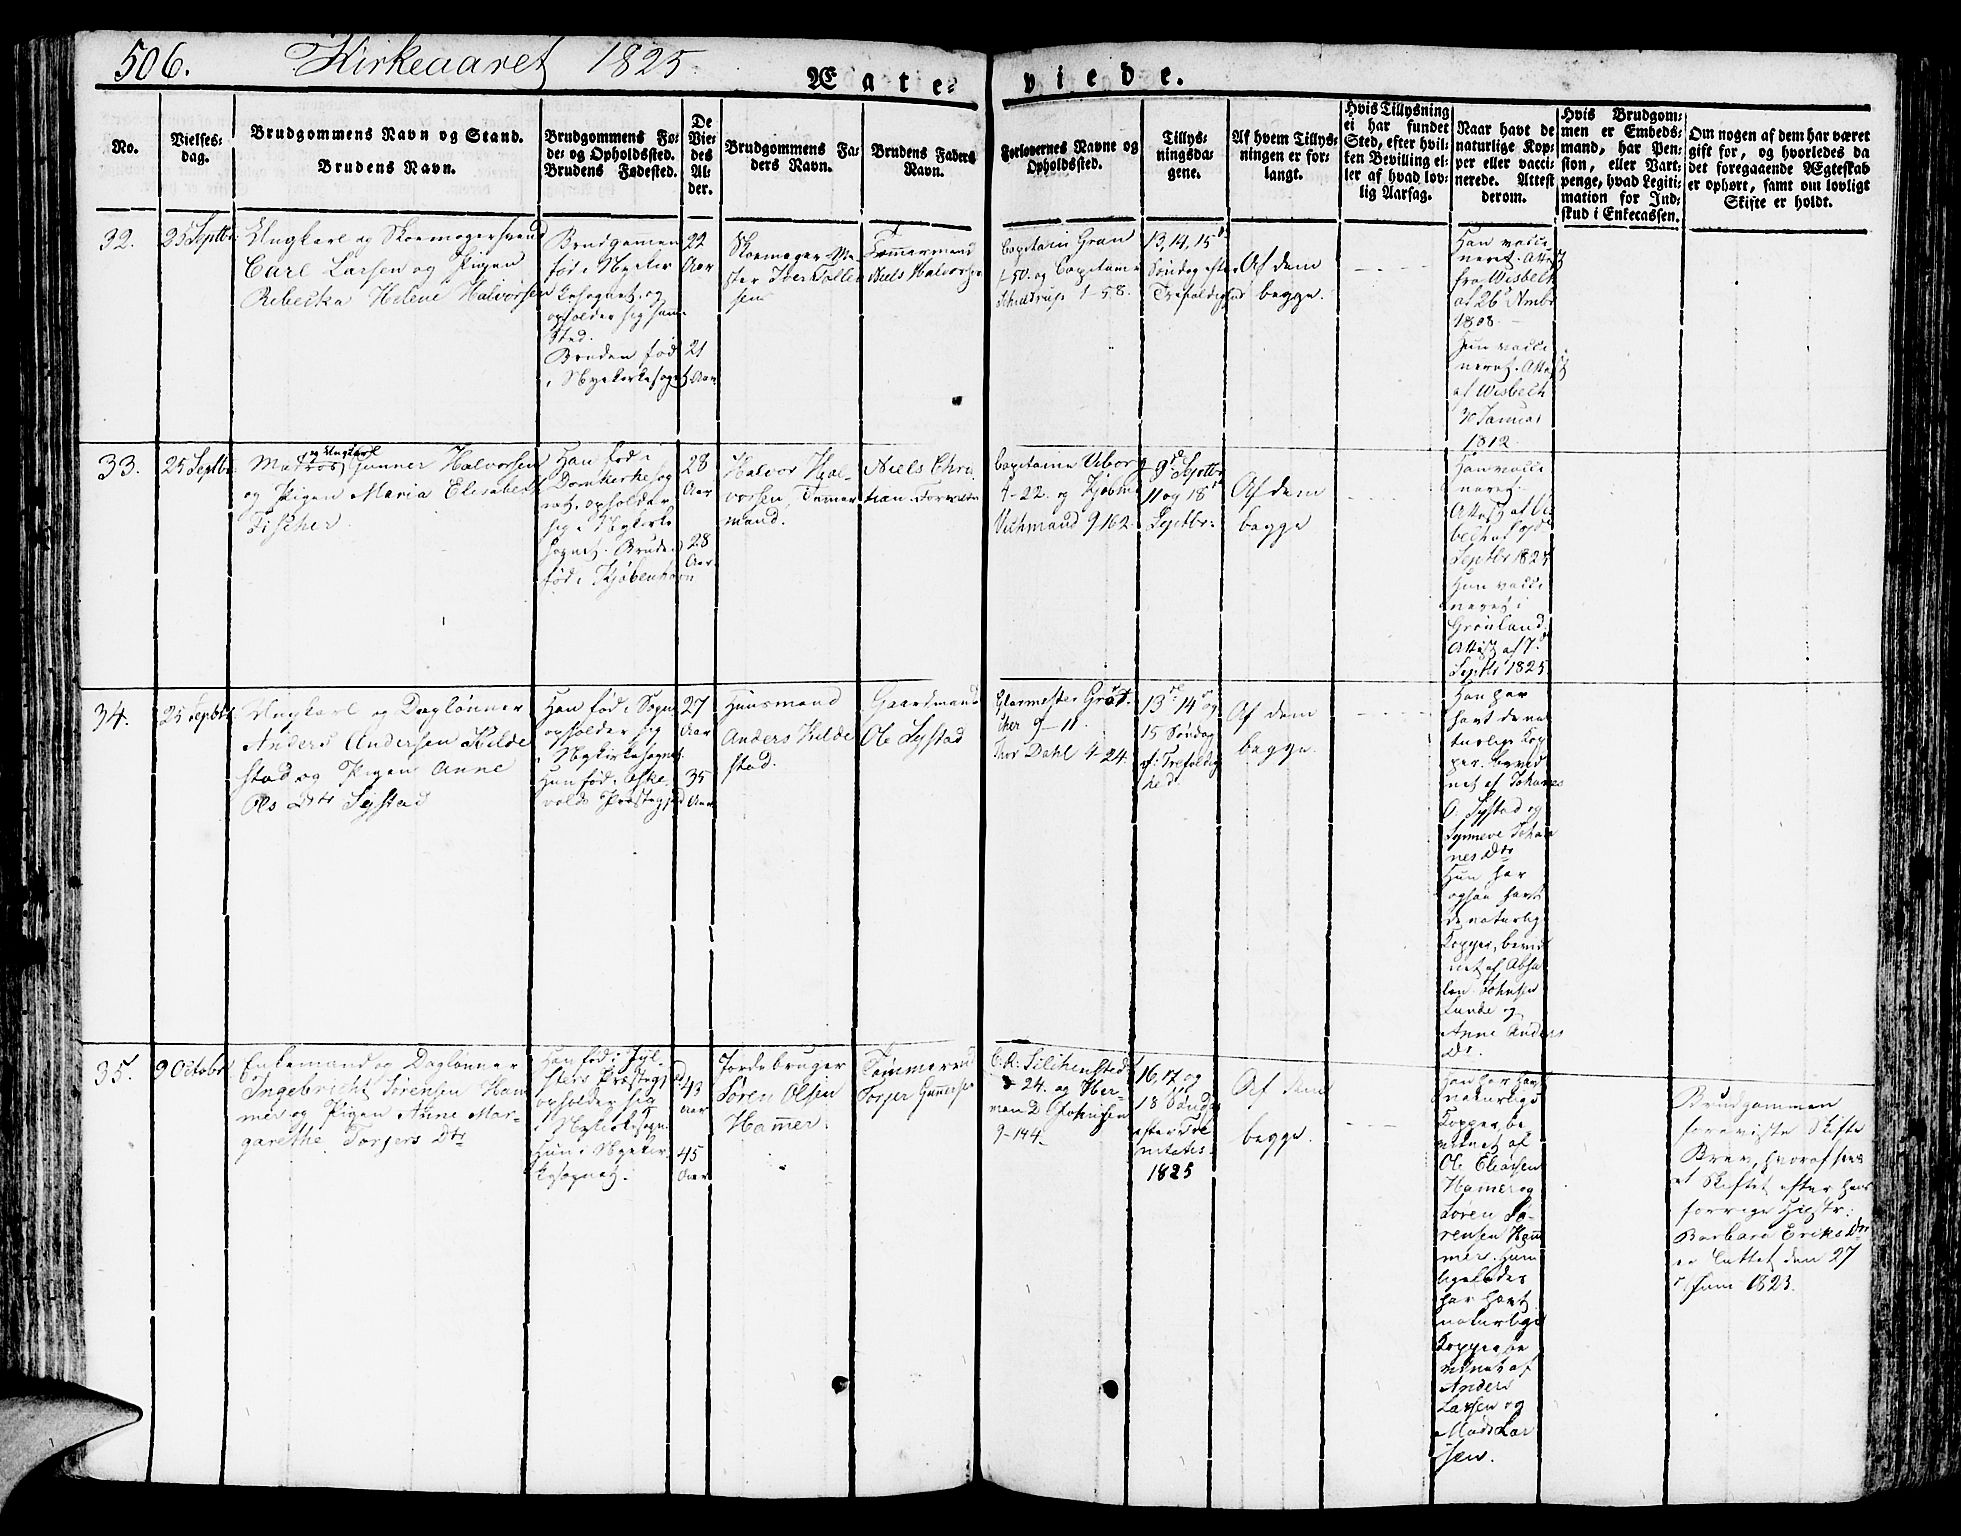 506. Kirkeaaret 1825.
Ægte-
viede.
No.
Vielses-
dag.
Brudgommens Navn og Stand.
Brudens Navn.
Brudgommens Fø-
de- og Opholdssted.
Brudens Fødested.
De
Vie-
des
Al-
der.
Brudgommens Fa-
ders Navn.
Brudens Faders
Navn.
Forlovernes Navne og
Opholdssted.
Tillys-
ningsda-
gene.
Af hvem Tillys-
ningen er for-
langt.
Hvis Tillysning
ei har fundet
Sted, efter hvil-
ken Bevilling el-
ler af hvad lov-
lig Aarsag.
Naar havt de
naturlige Kop-
per eller vacci-
nerede. Attest
derom.
Hvis Brudgom-
men er Embeds-
mand, har Pen-
sion, eller Vart-
penge, hvad Legiti-
mation for Ind-
skud i Enkecassen.
Om nogen af dem har været
gift før, og hvorledes da
det foregaaende Ægteskab
er ophørt, samt om lovligt
Skifte er holdt.
32.
25 Septbr
Ungkarl og Skomagersvend
Carl Larsen og Pigen
Rebekka Helene Halvorsen
Brudgomen
fød i Nykir
kesognet, og
opholder sig sam-
sted.
Bruden fød
i Nyekirkesognet
22
Aar
21
Aar
Skomager Me-
ster Iver Tolle
sen
Tømermand
Niels Halvorsen
Capitain Gran
1-50. og Capitaine
1-58.
13, 14, 15de
Søndag efter
Trefoldighed
Af dem
begge.
Han vacci
neret. Attest
fra Wisbech
af 26 Novbr
1808.
Hun vacci
neret. Attest
af Wisbech
Januar
1812.
33.
25 Septbr
Matros og Ungkarl Gunner Halvorsen
og Pigen Maria Elisabeth
Fischer.
Han fød i
Domkirkesog
net, opholder
sig i Nykirke
sognet. Bruden
fød i Kjøbenhavn
28
Aar
28
Aar.
Halvor Hal-
vorsen, Tømer
mand.
Niels Chri
stian
Capitaine Viborg
4-22. og Kjøbmd
Wichmand 9-162.
9de Septbr
11 og 18
Septbr.
Af dem
begge
Han vacci
neret.
Attest af Vis
bech af
Septbr 1825
Hun vacci
neret i
Grønland.
Attest af 17de
Septbr 1825
34.
25 Septbr
Ungkarl og Dagløner
Anders Andersen Kilde
stad og Pigen Anne
Ols Dtr Systad
Han fød i Sogn
opholder sig
i Nykirkesognet.
Hun fød i Aske-
volds Præstegjeld
27
Aar
35
Aar
Huusmand
Anders Kilde
stad.
Gaardmand
Ole Systad
Glarmester
9-11.
Thor Dahl 4-24.
13de 14de og
15 Søndag
ef: Trefoldig
hed.
Af dem
begge.
Han har
havt de na
turlige Kop
per, bevid
net af Johanes
O. Systad og
Synneve Johan
nes Dtr
Hun har
ogsaa havt
de naturlige
Kopper, bevid
net af Absa
lon Johnsen
Lunde og
Anne Anders
Dr.
35.
9 Octobr
Enkemand og Dagløner
Ingebricht Sørensen Ham
mer og Pigen Anne Mar-
garethe Torgers Dtr
Han fød i Jøl-
sters Præstegjeld
opholder sig
i Nykirkesogn
Hun i Nyekir
kesognet.
43
Aar
45
Aar
Jordebruger
Søren Olsen
Hamer.
Tømermd
Torger Gunersen
C. A: Lilienskiold
24. og Her-
man D. Johnsen
9-144.
16, 17 og
18 Søndag
efter Tri
nitatis
1825
Af dem
begge.
Han har havt
naturlige
Kopper, be
vidnet af
Ole Eliassen
Hamer og
Søren Sø-
rensen Ham
mer. Hun
ligeledes
har havt
naturlige
Kopper, be
vidnet af
Anders
Larsen og
Mads Lar
sen.
Brudgommen
foreviste Skifte
Brev, hvoraf sees
at Skiftet efter hans
forrige Hustr:
Barbara Eriks Dtr
er sluttet den 27
Juni 1823.